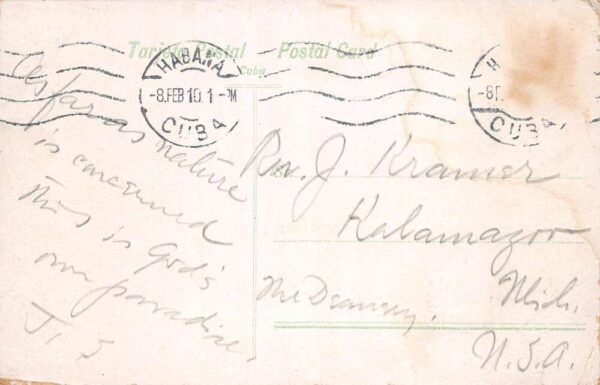 Tarjeta Postal Postal Card
Cuba
HABANA
-8 FEB 10. 1 - PM
CUBA
H
-8 F
CUBA
As far as nature
is concerned
this is God's
own paradise.
J. S
Rev. J. Kramer
Kalamazoo
Mich.
The Deanery.
U.S.A.